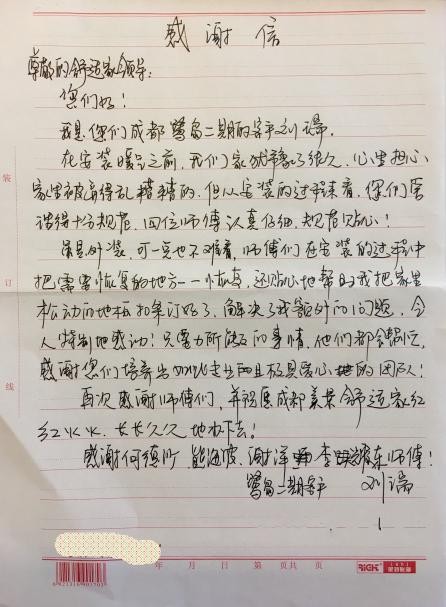 感谢信
尊敬的舒适家领导：
您们好！
我是您们成都鹭岛二期的客户刘瑞。
在安装暖气之前，我们家犹豫了很久，心里担心
家里被弄得乱糟糟的。但从安装的过程来看，你们
得十分规范，四位师傅认真仔细，规范贴心！
虽是外装，可一点也不难看，师傅们在安装的过程中
把需要恢复的地方一一恢复，还贴心地帮我把家里
松动的地板扣条订好了，解决了我额外的问题，令
人特别地感动！只要力所能及的事情，他们都会帮忙，
感谢您们培养出如此专业而且极具责心地的团队！
再次感谢师傅们，并祝愿成都美景舒适家红
红火火、长长久久地办下去！
感谢何德 熊 谢洋 李 东师傅！
鹭岛二期客户 刘瑞
装
订
线
年 月 日 第 页共 页
6921316901703